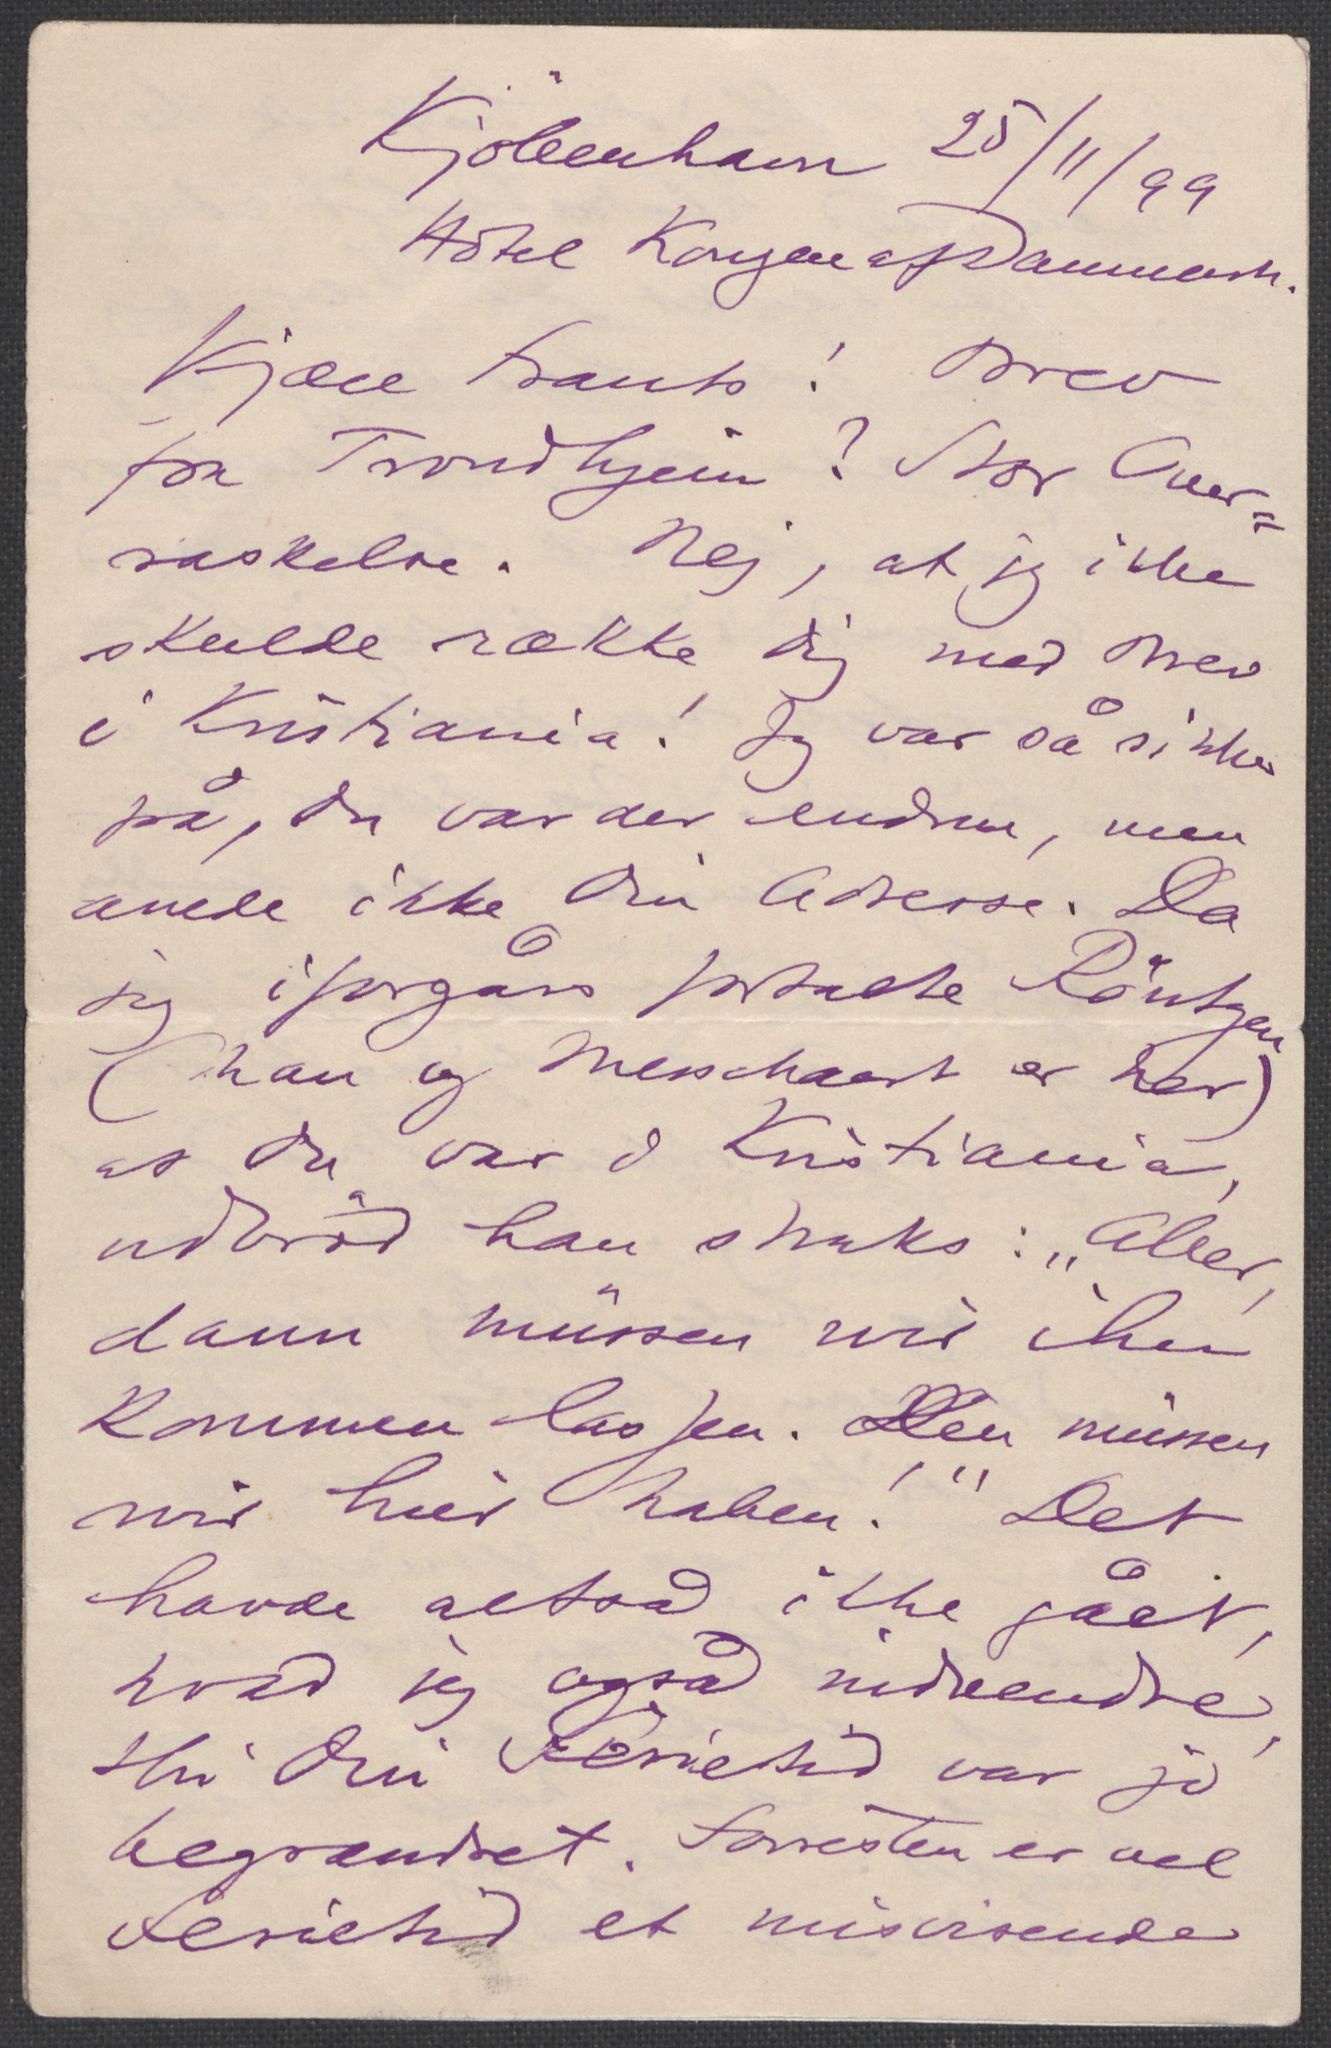 Kjöbenhavn 25/11/99
Hôtel Kongen af Danmark.
Kjære Frants! Brev
fra Trondhjem? Stor Over=
raskelse. Nej, at jeg ikke
skulde række Dig med Brev
i Kristiania! Jeg var så sikker
på, Du var der endnu, men
anede ikke Din Adresse. Da
jeg iforgårs fortalte Röntgen
(han og Messchaert er her)
at Du var i Kristiania,
udbrød han straks: „Aber,
dann müssen wir ihn
kommen lassen. Den müssen
wir hier haben!" Det
havde altså ikke gået,
hvad jeg også indvendte,
thi Din Ferietid var jo
begrændset. Forresten er vel
Ferietid et misvisende